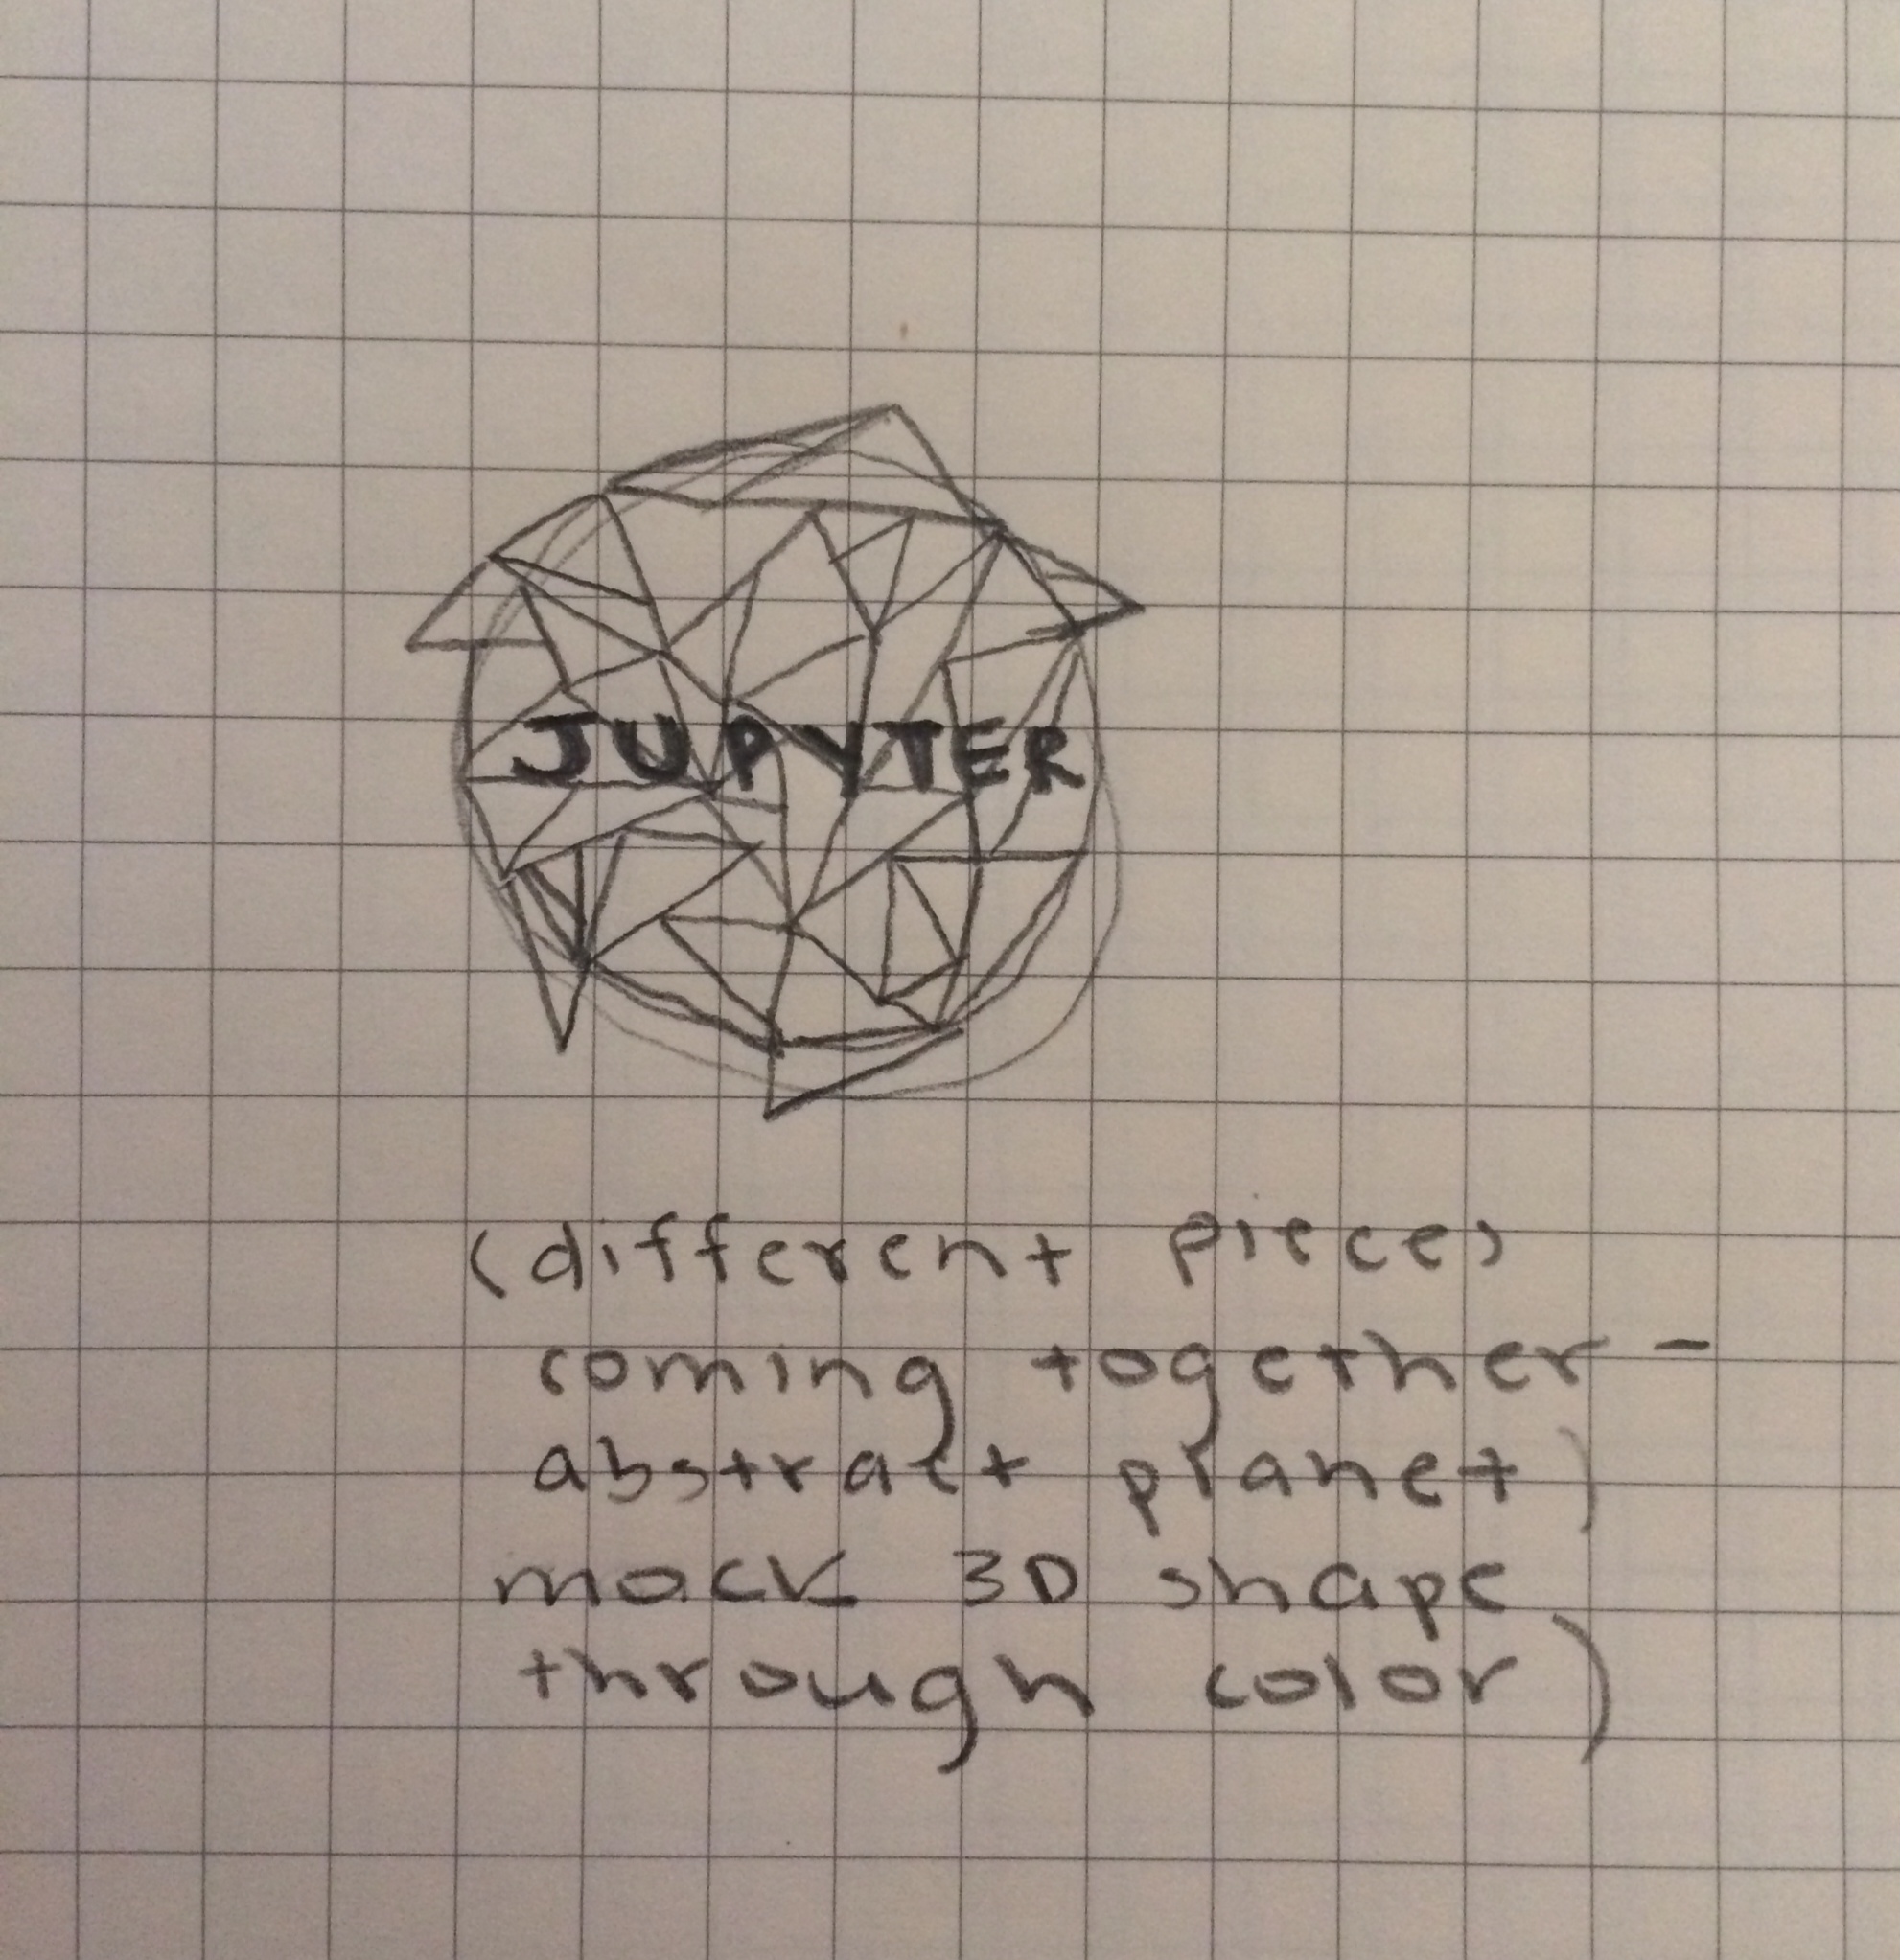 JUPYTER
(different pieces
coming together -
abstract planet)
mock 3D shape
through color)